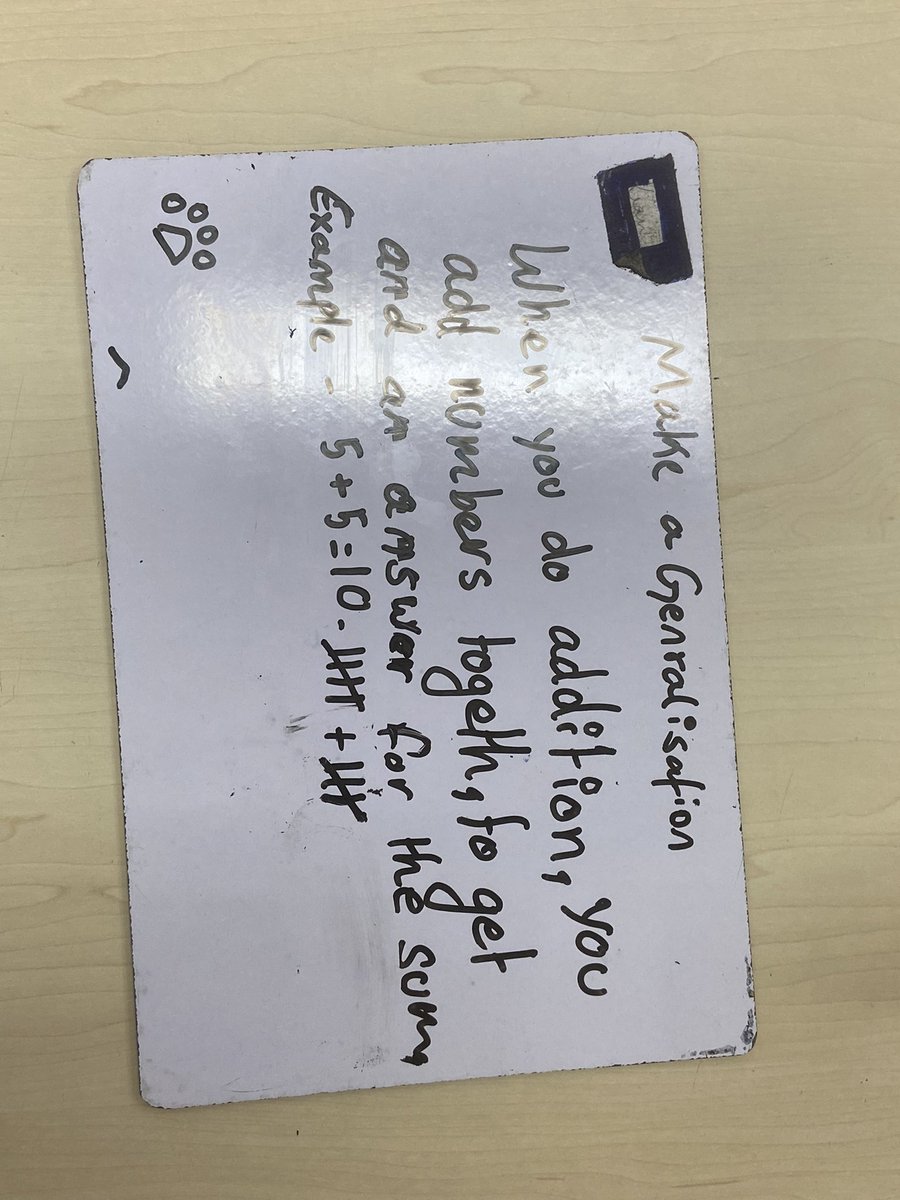 Make a Genralisation
When you do addition, you
add nombers togeth, to get
and an answer for the sum,
Example - 5+5=10 - 卌 + 卌